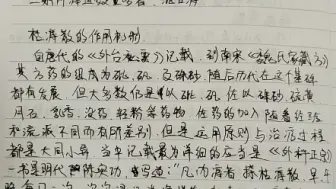 枯痔散的作用机制
自唐代的《外台秘要》记载,到南宋《魏氏家藏方》
其方药的组成为砒、矾、及硃砂,随后历代在这个基础
都有发展,但大多数仍是以砒、矾,佐以硃砂、硫黄
月石、乳香、没药、轻粉等药物,佐药的加入随着经验
和流派不同而有所差别,但是运用原则与治疗过程
都是大同小异,当中记载最为详细的应当是《外科正宗》
一书是明代陈实功,书写道:“凡内痔者,搽枯痔散,早、